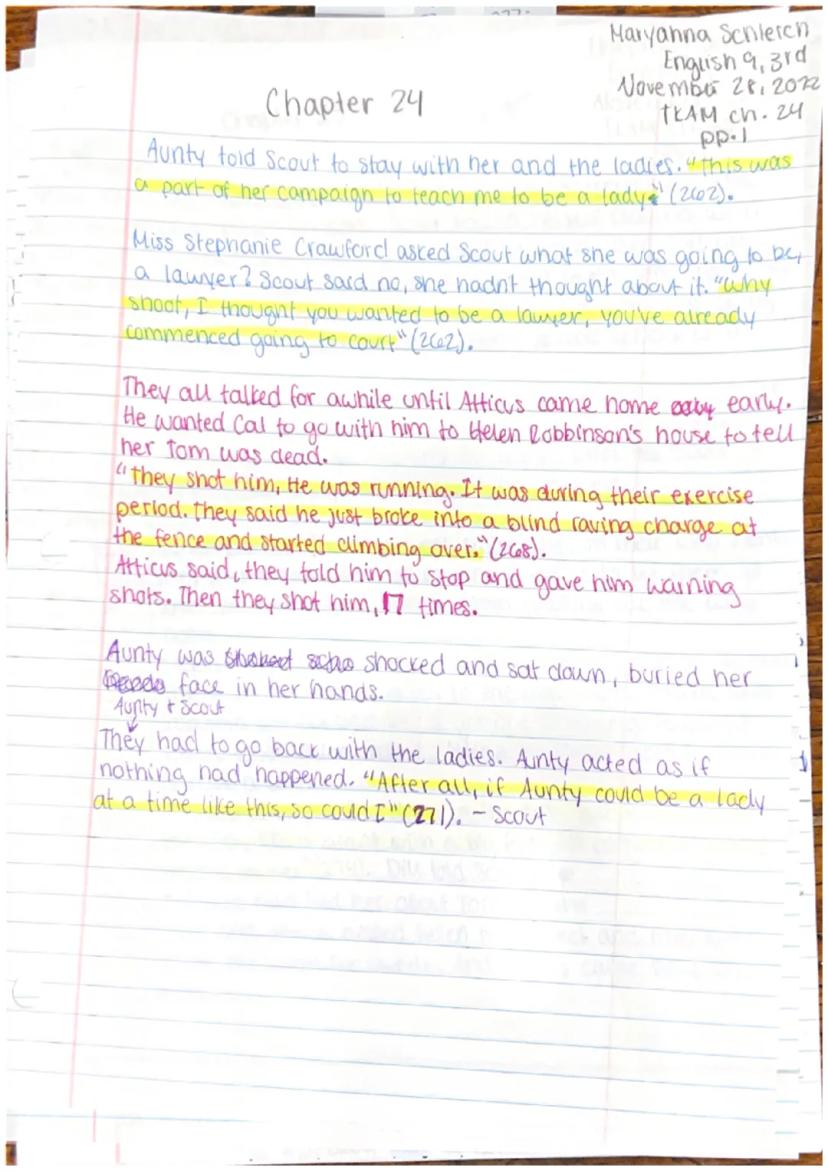 Maryanna Schlerch
English 9, 3rd
November 28, 2022
TKAM ch. 24
pp.1
Chapter 24
Aunty told Scout to stay with her and the ladies. "This was
a part of her campaign to teach me to be a lady" (262).
Miss Stephanie Crawford asked Scout what she was going to be,
a lawyer? Scout said no, she hadn't thought about it. "Why
shoot, I thought you wanted to be a lawyer, you've already
commenced going to court" (262).
They all talked for awhile until Atticus came home early.
He wanted Cal to go with him to Helen Robbinson's house to tell
her Tom was dead.
"They shot him, He was running. It was during their exercise
period. They said he just broke into a blind raving charge at
the fence and started climbing over." (268).
Atticus said, they told him to stop and gave him warning
shots. Then they shot him, 17 times.
Aunty was shocked and sat down, buried her
face in her hands.
Aunty + Scout
They had to go back with the ladies. Aunty acted as if
nothing had happened. "After all, if Aunty could be a lady
at a time like this, so could I" (271). - Scout